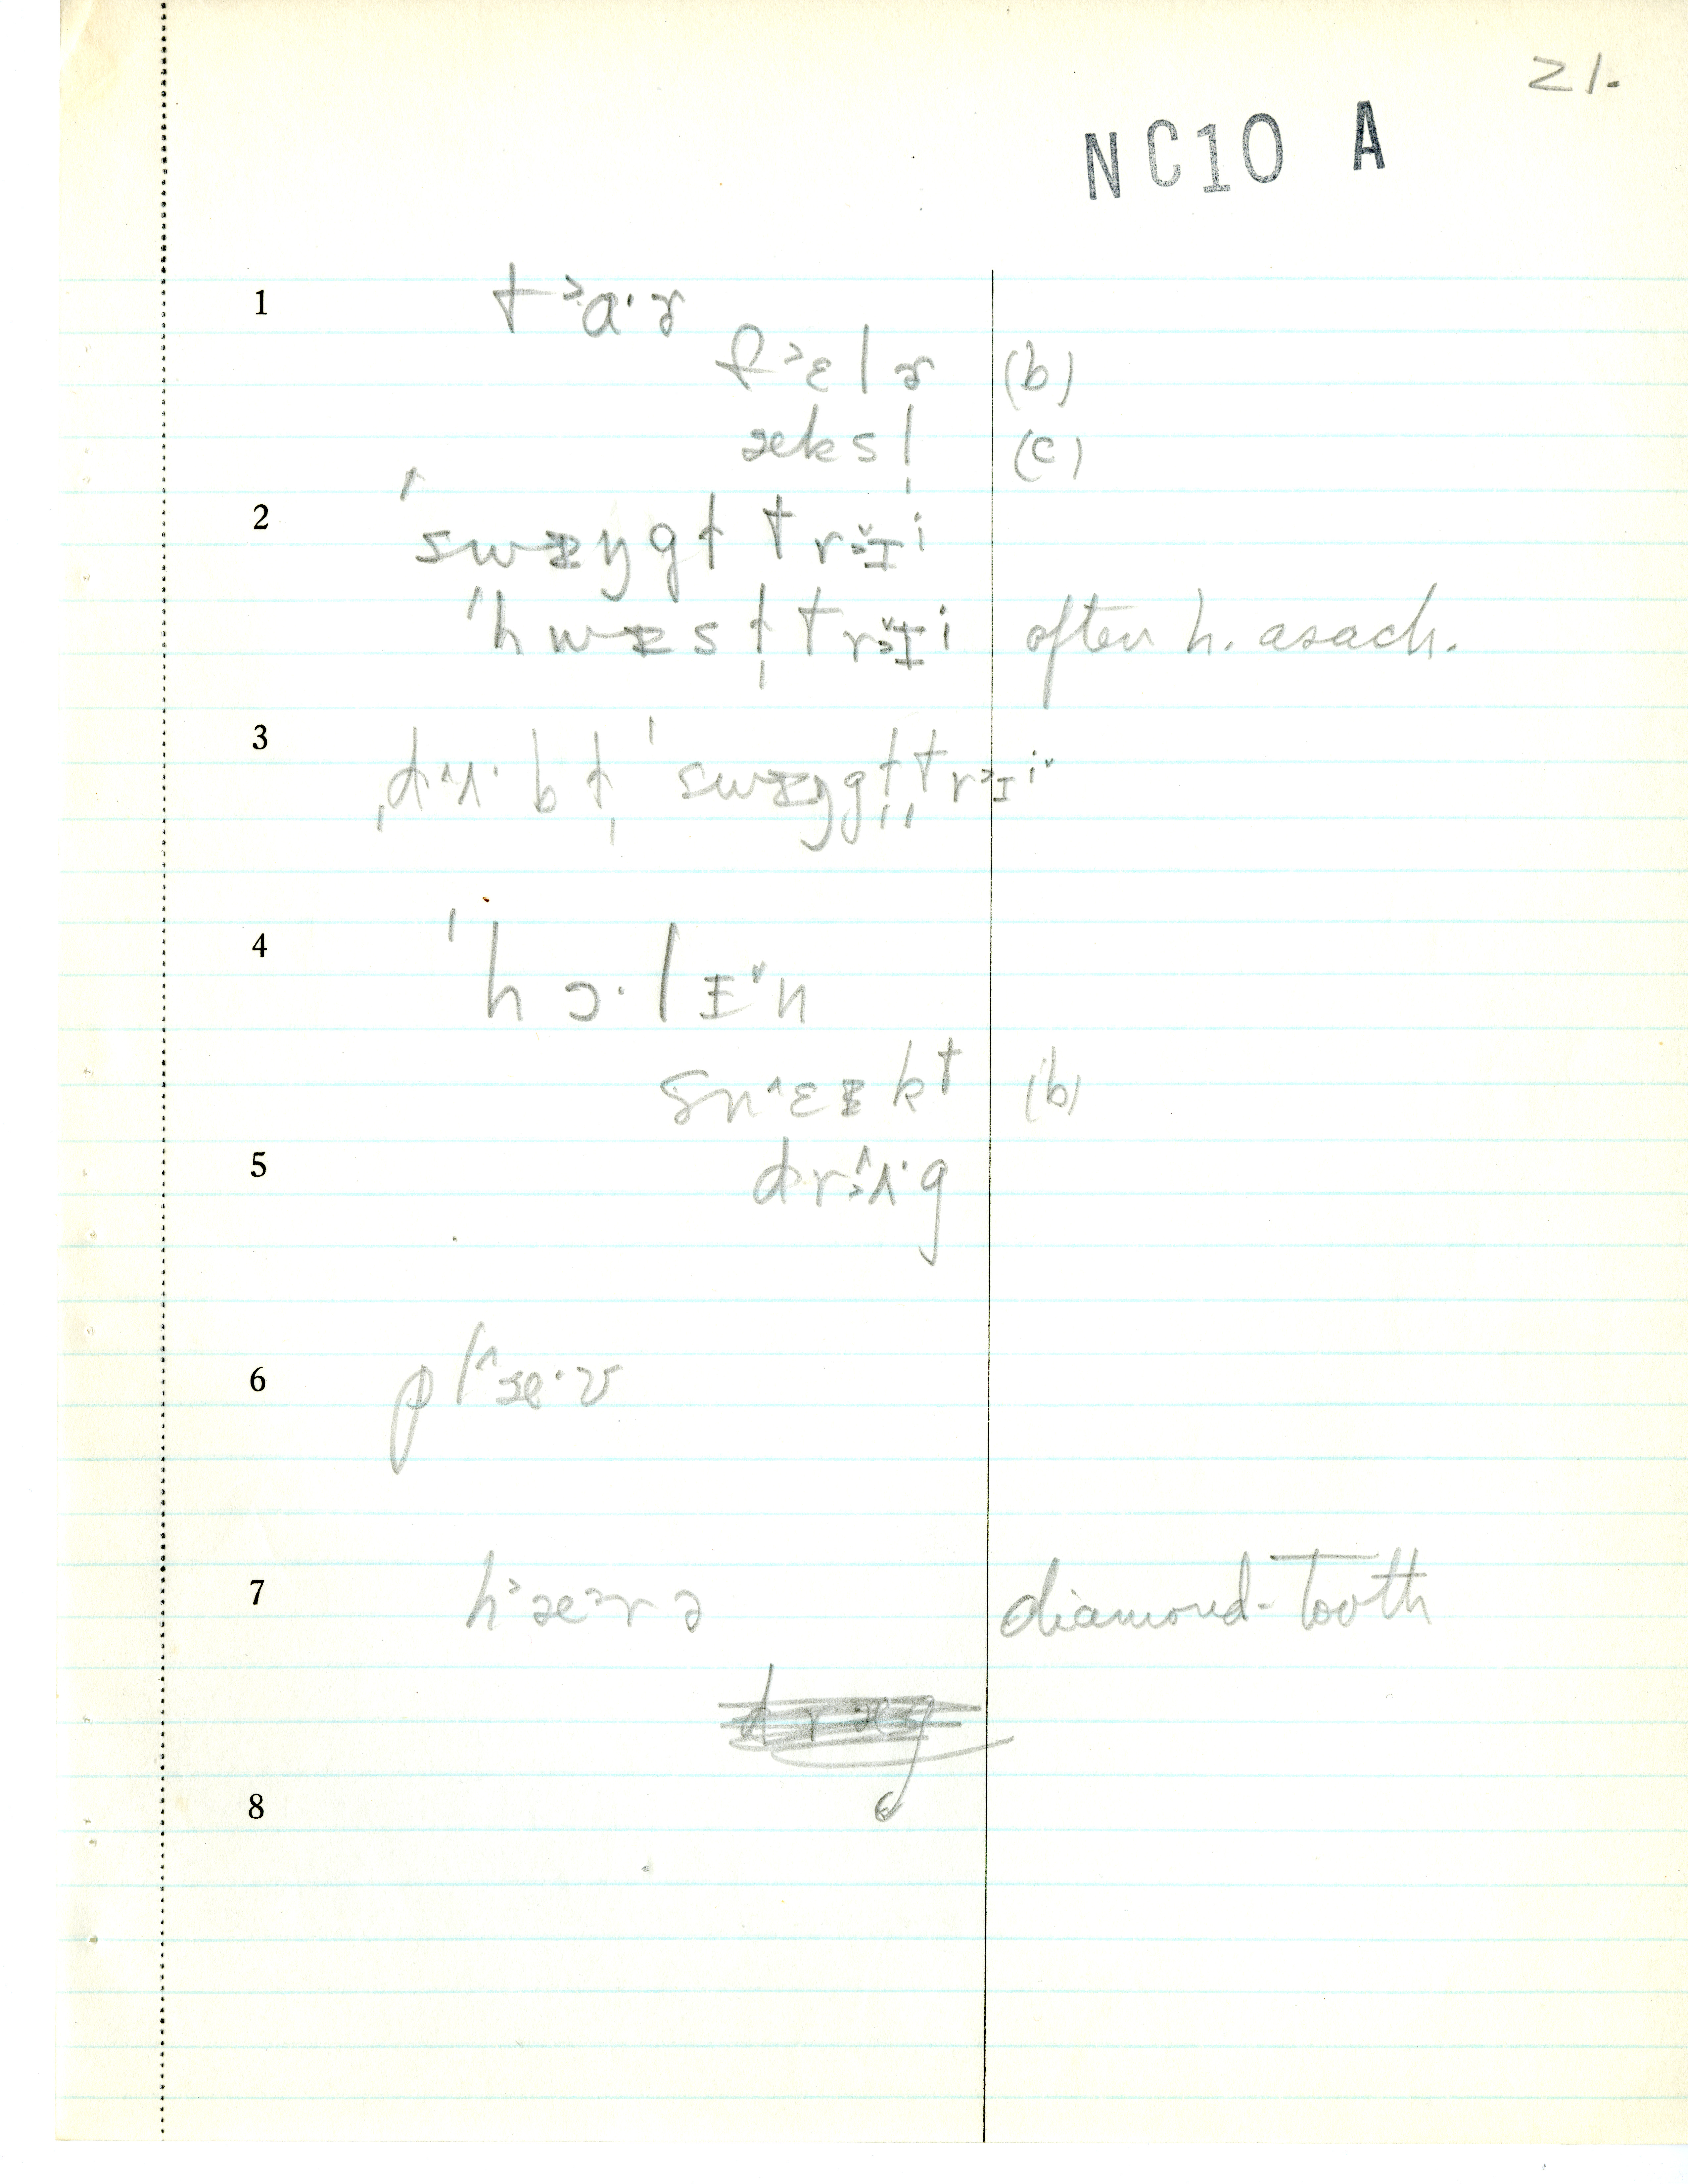 21.
NC10 A
1 t˃a·ɚ
f˃ɛlɚ (b)
æksl̩ (c)
2 ˈswɪŋgt trɪi
ˈhwɪs t̩ trɪi often h. asach.
3 ˌdʌ·bt̩ ˈswɪŋgt̩trɪi
4 ˈhɔ·lɪ˅n
sn˄ɛɪkt (b)
5 dr˄ʌ·g
6 pl˄æ·v
7 h˃æ˃rə diamond-tooth
8